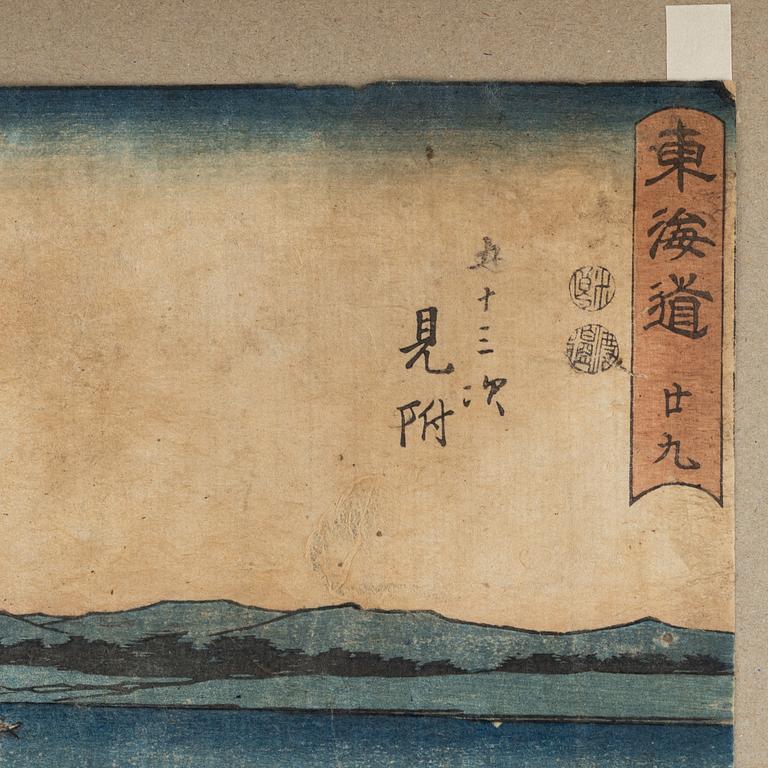 東海道 廿九
五十三次
見附